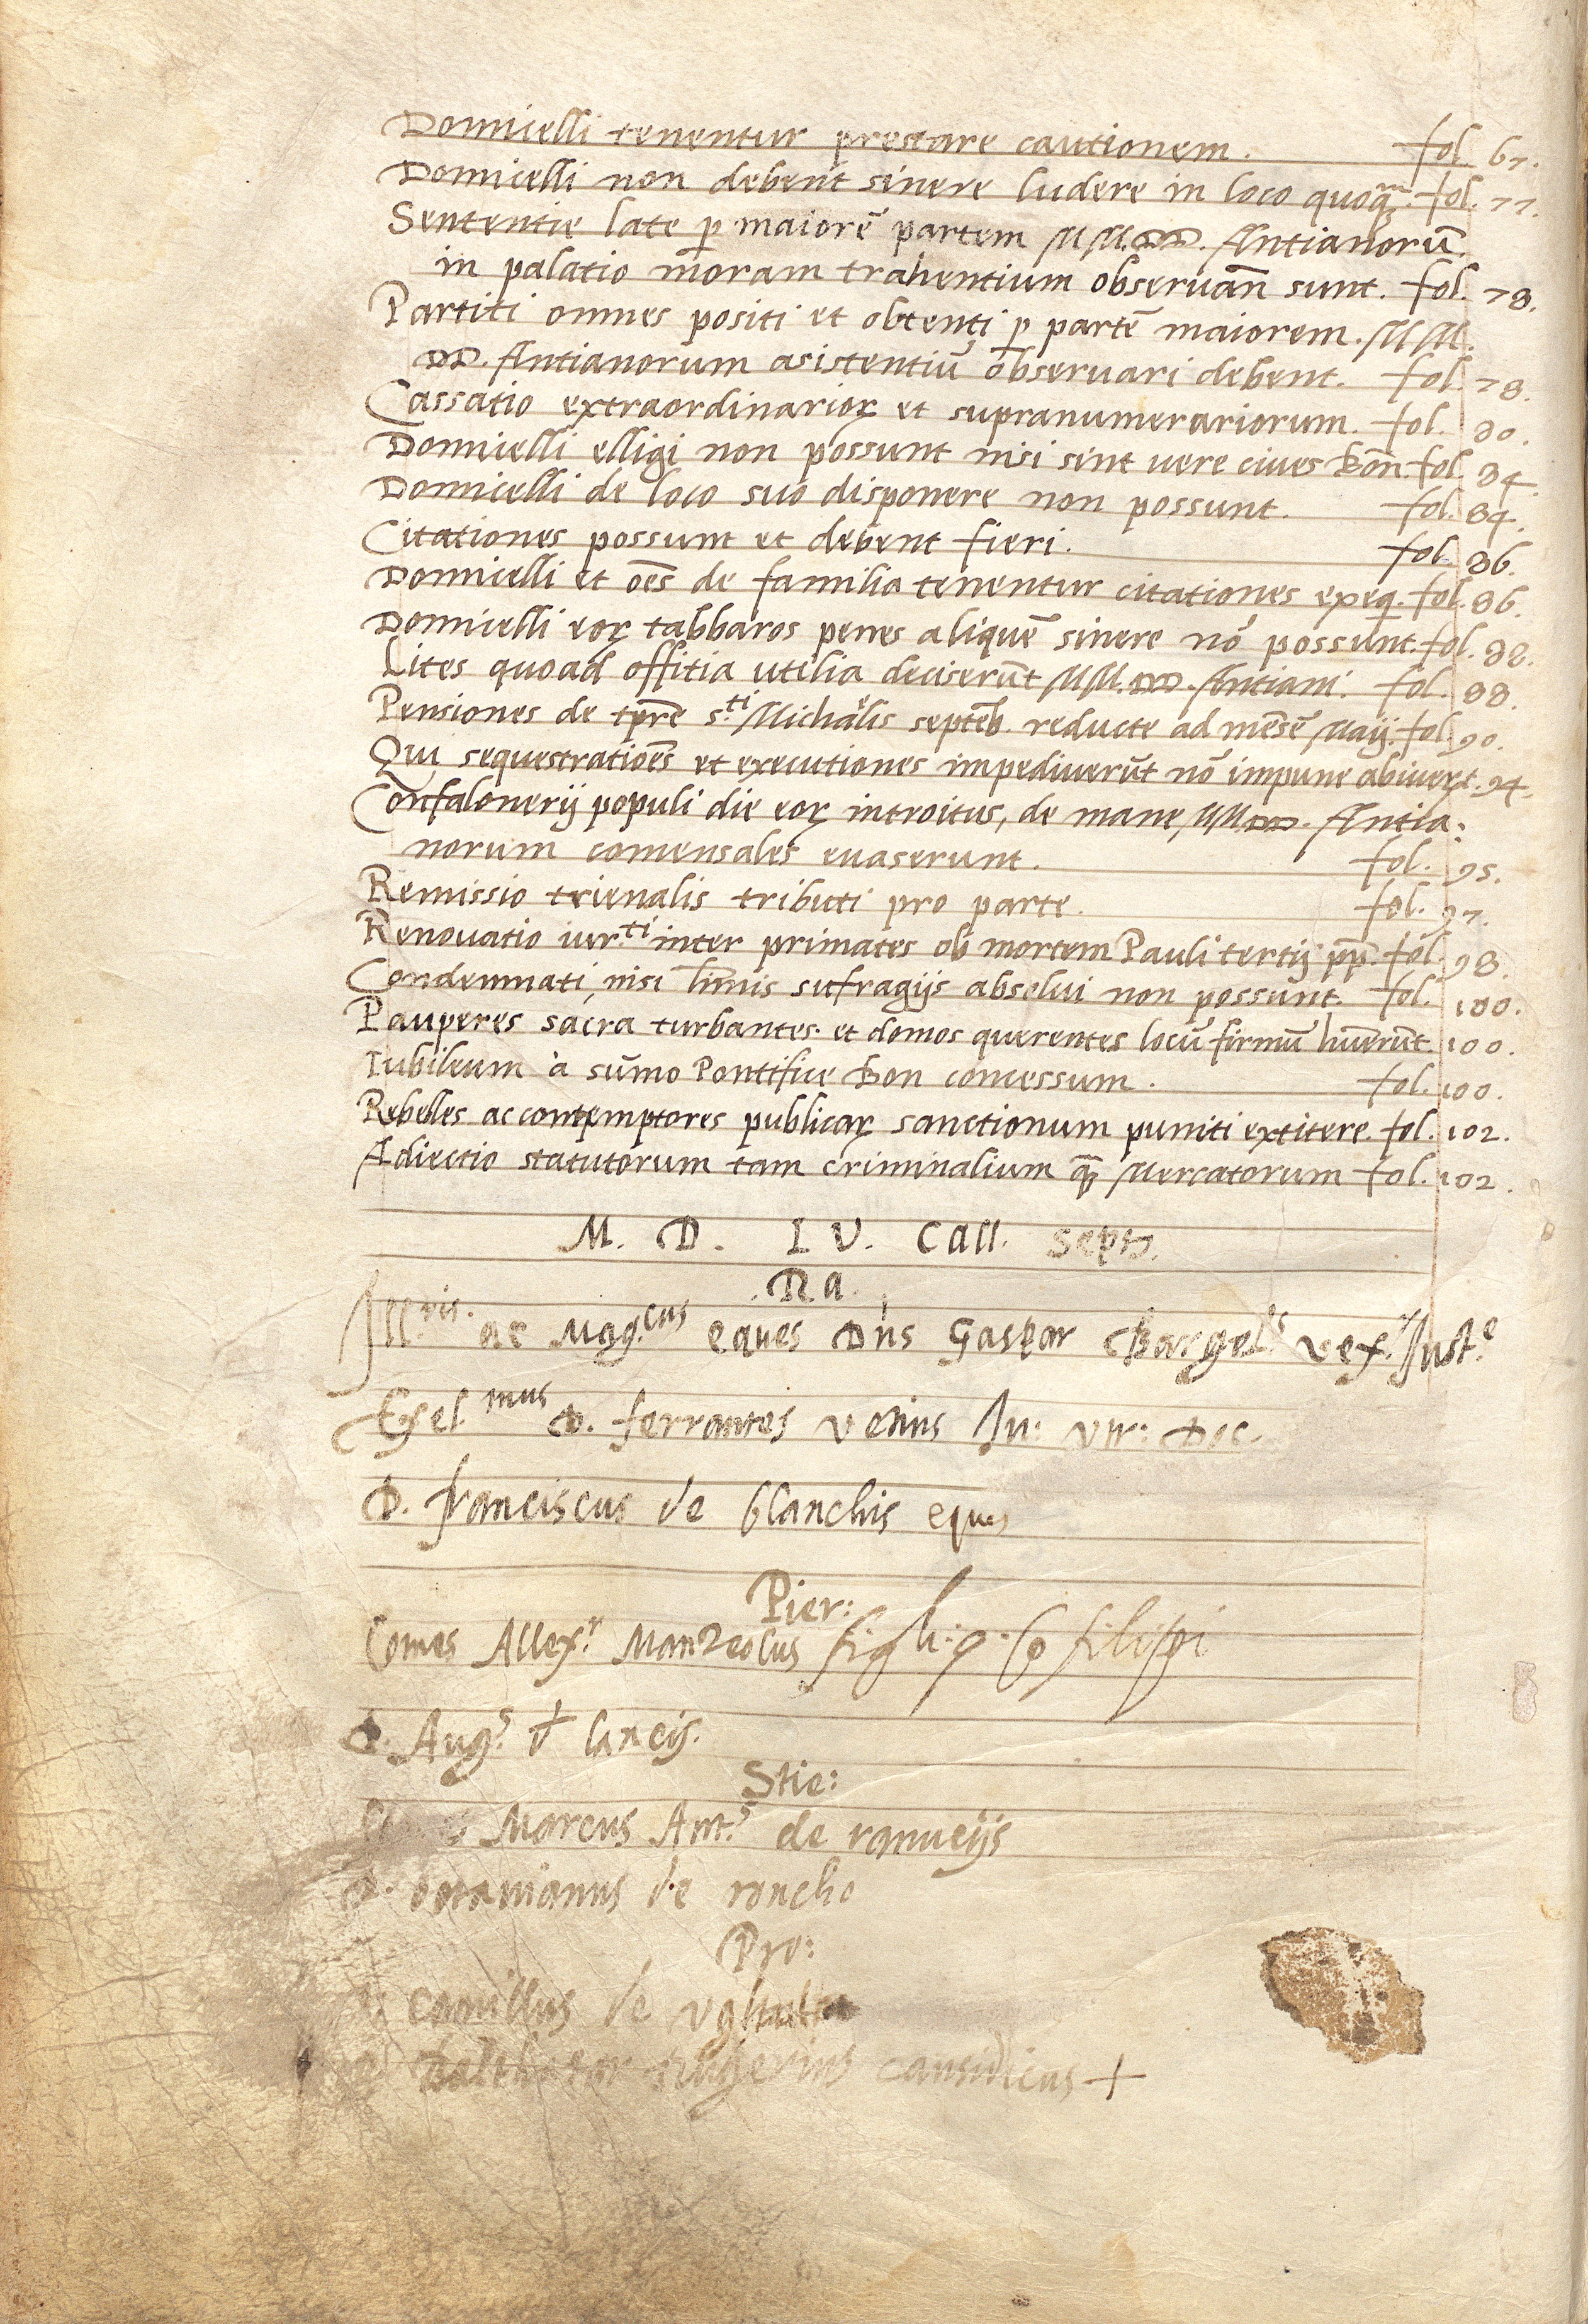 Donnicelli tenentur prestare cautionem. fol 67.
Donnicelli non debent sinere ludere in loco quoq̃. fol. 77.
Sententie late p maiorẽ partem MM.DD. Antianorũ
in palatio moram trahentium obseruañ sunt. fol. 78.
Partiti omnes positi et obtenti p partẽ maiorem. MM.
DD. Antianorum asistentiũ obseruari debent. fol. 78.
Cassatio extraordinarioꝝ et supranumerariorum. fol. 80.
Donnicelli elligi non possunt nisi sint uere ciues Boñ. fol. 84.
Donnicelli de loco suo disponere non possunt. fol. 84.
Citationes possunt et debent fieri. fol. 86.
Donnicelli et oẽs de familia tenentur citationes exeq. fol. 86.
Donnicelli eoꝝ tabbaros penes aliquẽ sinere nõ possunt. fol. 88.
Lites quoad offitia utilia deciserũt MM.DD. Antiani. fol. 88.
Pensiones de tp̃re s.ti Michaelis septeb. reducte ad mẽsẽ Maij. fol. 90.
Qui sequestratioẽs et executiones impediuerũt nõ impune abiuerũt. 94.
Confalonerij populi die eoꝝ introitus, de mane MM.DD. Antia:
norum comensales euaserunt. fol. 95.
Remissio trienalis tributi pro parte. fol. 97.
Renouatio iur.ti inter primates ob mortem Pauli tertij pp. fol. 98.
Condemnati, nisi ltimis sufragijs absolui non possunt. fol. 100.
Pauperes sacra turbantes. et domos querentes locũ firmũ huerũt. 100.
Iubileum à sũmo Pontifice Bon concessum. fol. 100.
Rebelles ac contemptores publicaꝝ sanctionum puniti extitere. fol. 102.
Adiectio statutorum tam criminalium q̃ Mercatorum fol. 102.
M. D. L V. Call. Septs.
R.a.
Ill.ris. ac Mag.cus eques Dns Gaspar Bargel.s vex.r Iust.e
Exel.mus D. ferrantes vetius Iu: vtr: Doc.
D. franciscus de blanchis eques
Pier:
Comes Allex.r Manzolus figli. q. Co filippi
D. Aug.s d lancis.
Stie:
Marcus Ant.s de ranucijs
D. octauianus de roncho
Pro:
camillus de
causidicus +